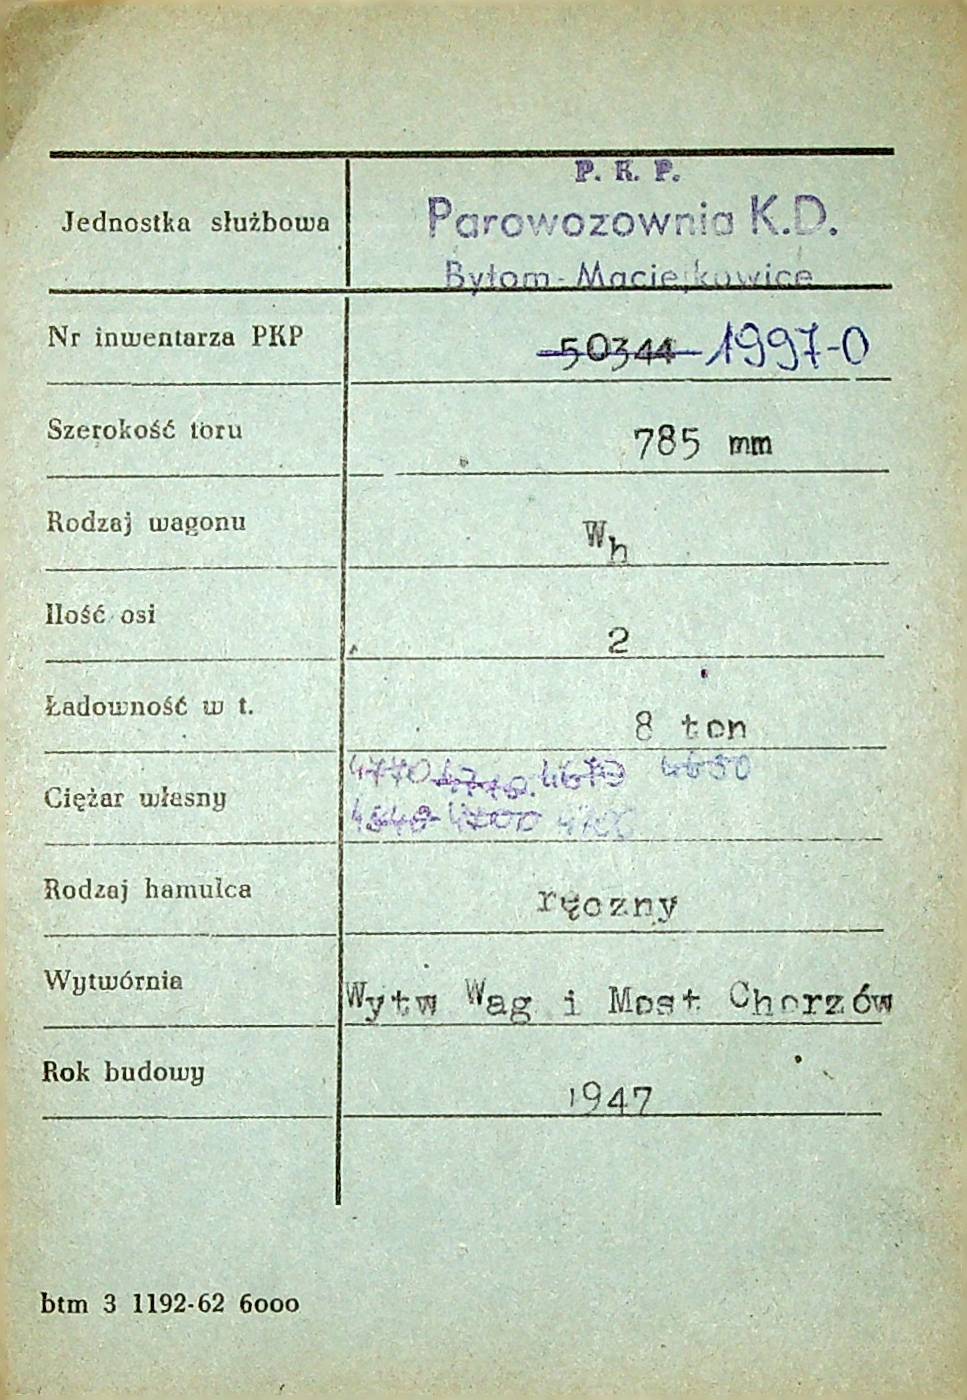 P. K. P.
Jednostka służbowa Parowozownia K.D.
Bytom-Maciejkowice
Nr inwentarza PKP 50344 1997-0
Szerokość toru 785 mm
Rodzaj wagonu Wh
Ilość osi 2
Ładowność w t. 8 ton
4770 4670 4650
Ciężar własny
4700
Rodzaj hamulca ręczny
Wytwórnia Wytw Wag i Most Chorzów
Rok budowy 1947
btm 3 1192-62 6000